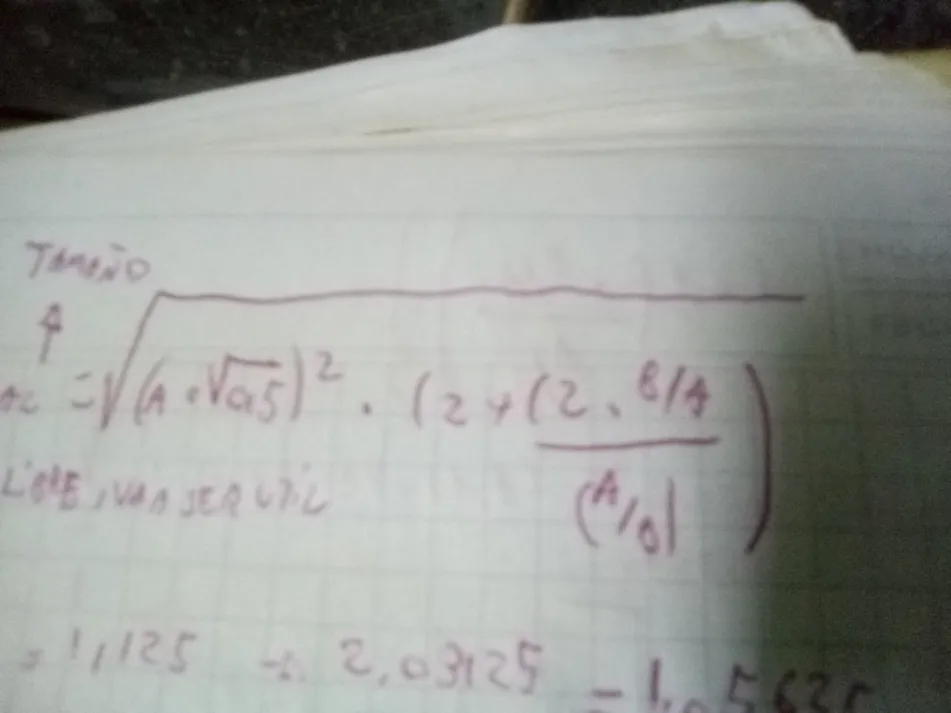 TAMAÑO
A
= √(A · √0,5)² · (2 + (2 · B/A
(A/B)
, VAN SER UTIL
= 1,125 2,03125 = 1,05625